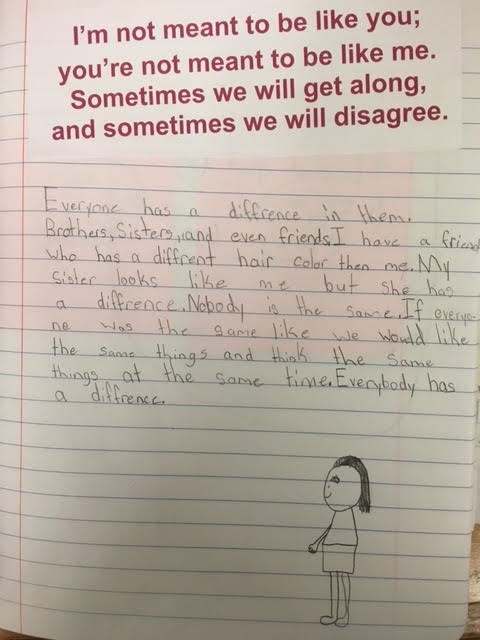 I'm not meant to be like you;
you're not meant to be like me.
Sometimes we will get along,
and sometimes we will disagree.
Everyone has a diffrence in them.
Brothers, Sisters, and even friends I have a friend
who has a diffrent hair color then me. My
sister looks like me but she has
a diffrence. Nobody is the same. If everyo-
ne was the same like we would like
the same things and think the same
things at the same time. Everybody has
a diffrence.